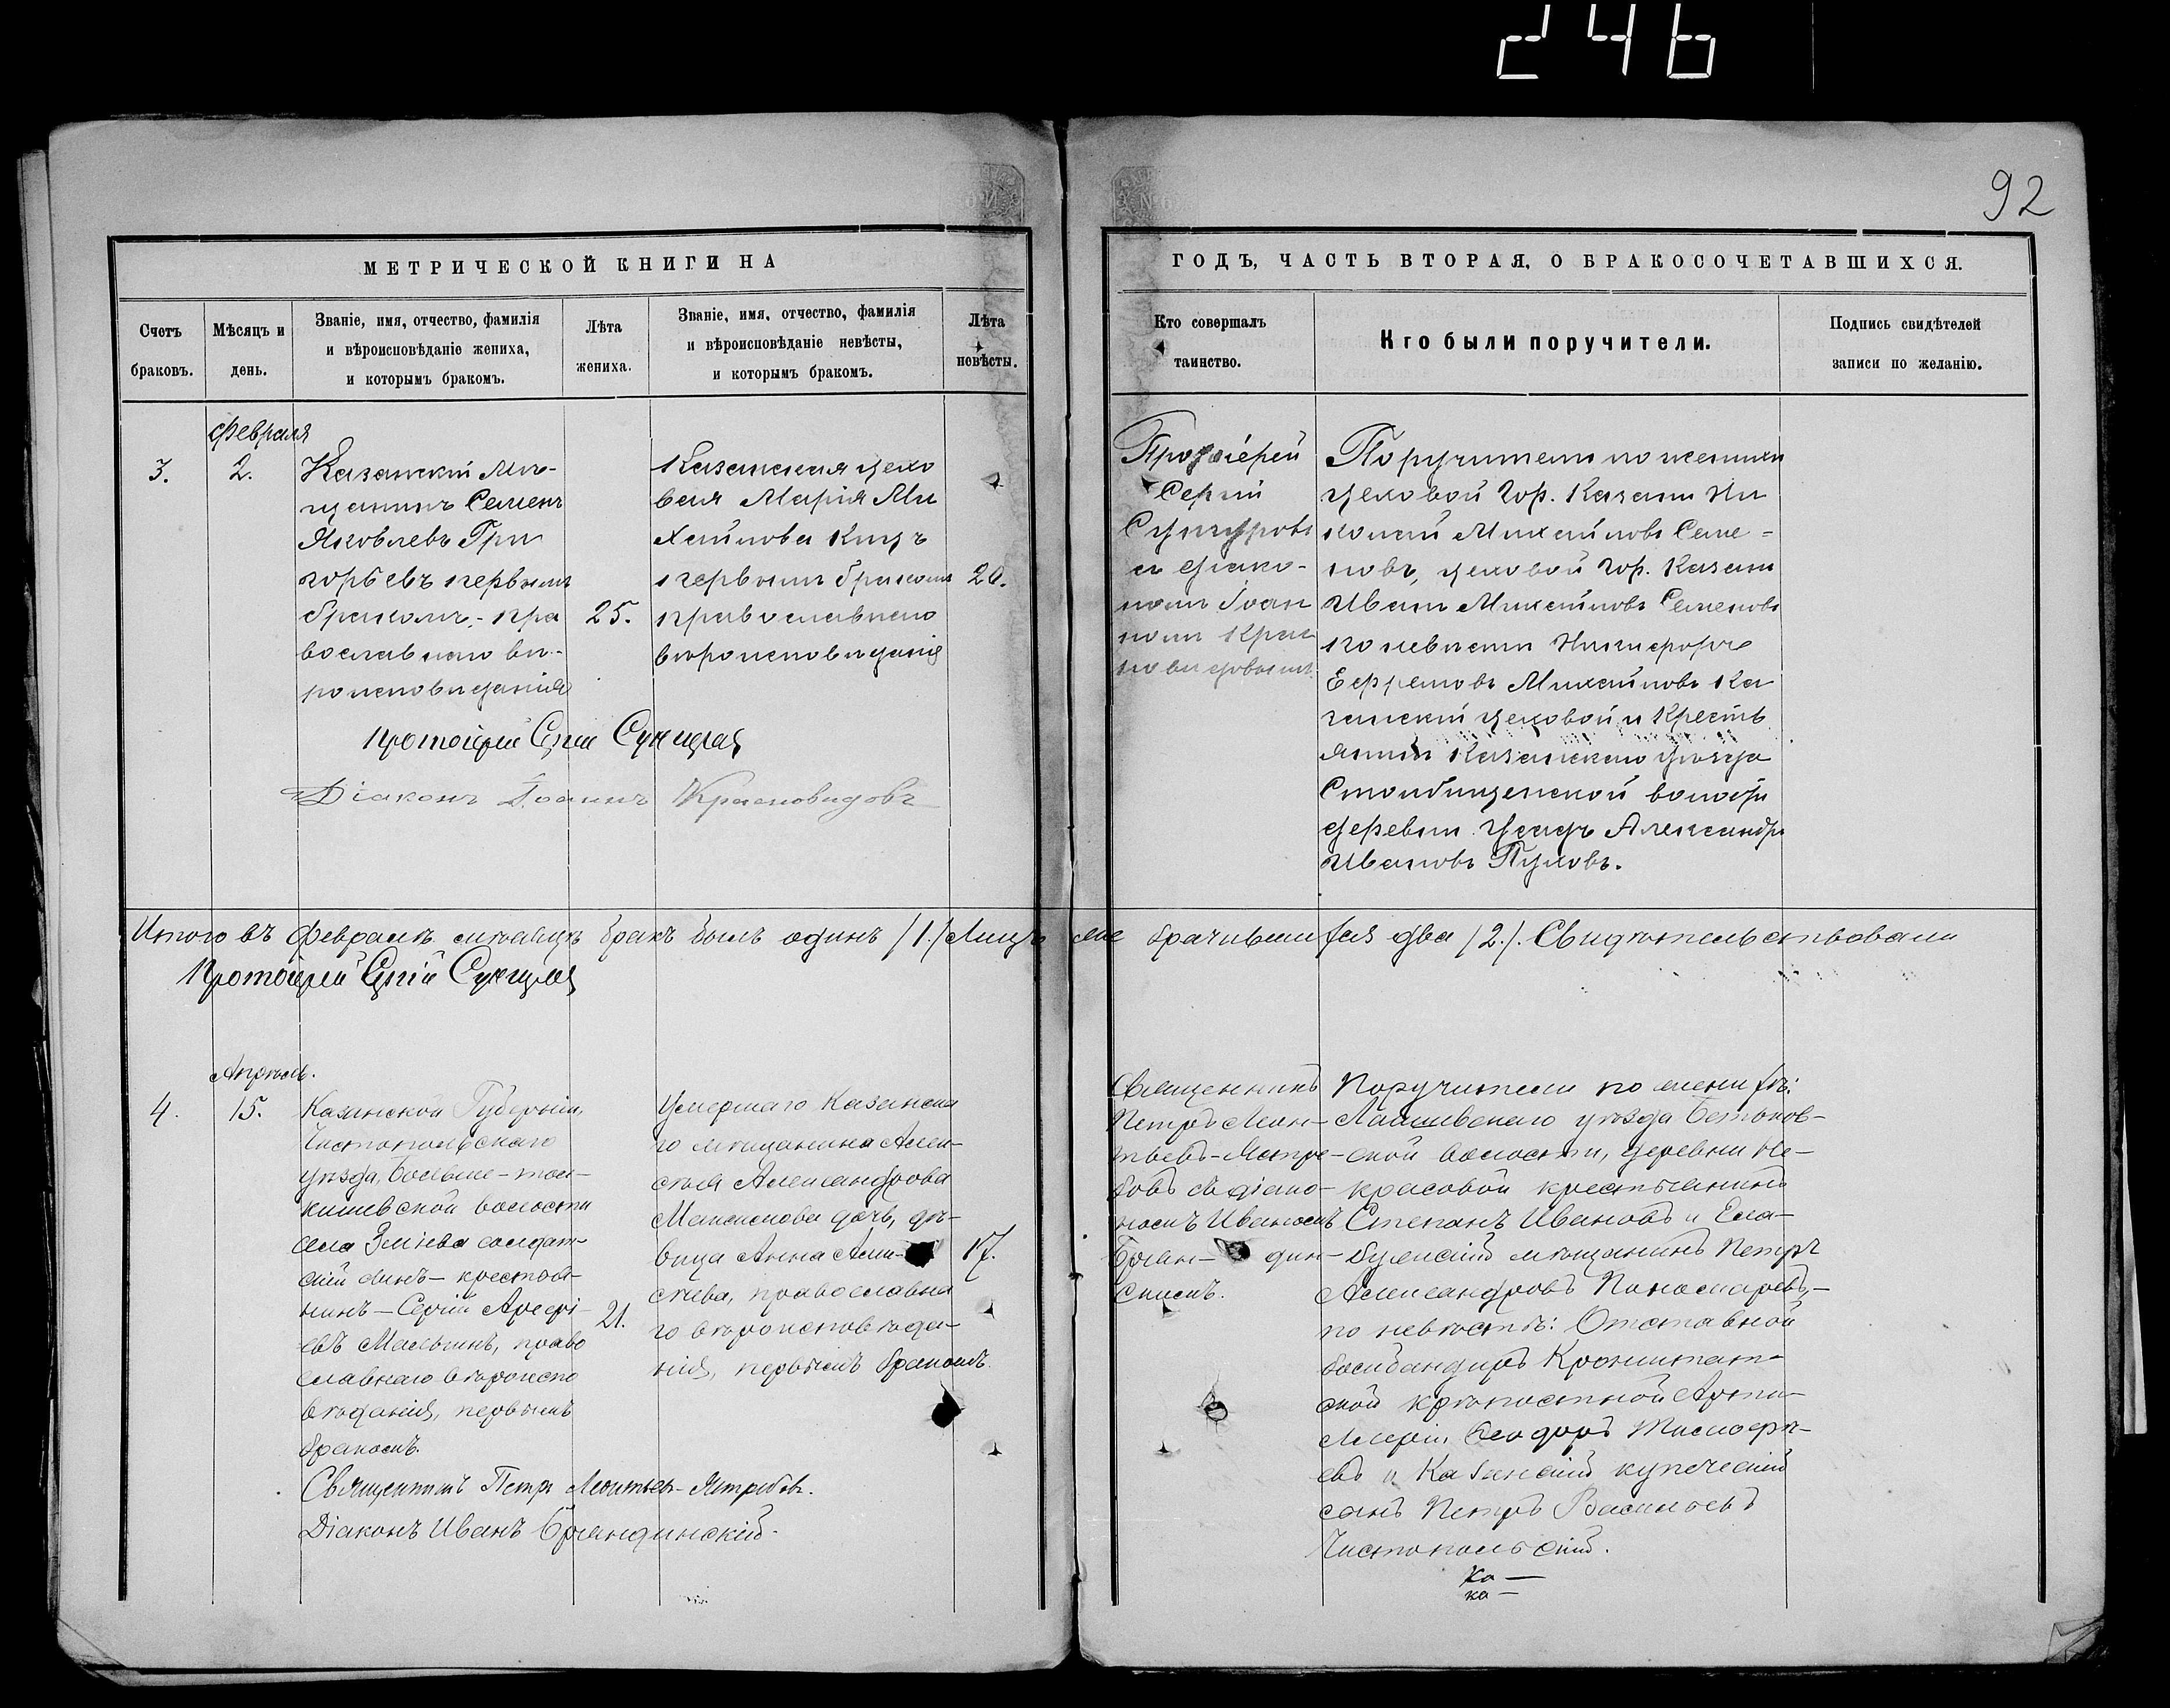 246
92
МЕТРИЧЕСКОЙ КНИГИ НА
ГОДЪ, ЧАСТЬ ВТОРАЯ, О БРАКОСОЧЕТАВШИХСЯ.
Счетъ
браковъ.
Мѣсяцъ и
день.
Званіе, имя, отчество, фамилія
и вѣроисповѣданіе жениха,
и которымъ бракомъ.
Лѣта
жениха.
Званіе, имя, отчество, фамилія
и вѣроисповѣданіе невѣсты,
и которымъ бракомъ.
Лѣта
невѣсты.
Кто совершалъ
таинство.
Кто были поручители.
Подпись свидѣтелей
записи по желанію.
Февраля
3.
2.
Казанскій мѣ-
щанинъ Семенъ
Яковлевъ Гри
горьевъ первымъ
бракомъ, - пра
вославнаго вѣ-
роисповѣданія
25.
Казанская цехо
вая Марія Ми
хайлова Кицъ
первымъ бракомъ
православнаго
вѣроисповѣданія
20.
Протоіерей
Сергій
съ діако-
номъ Іоан
номъ Крас
новидовымъ
Поручители по женихѣ
цеховой гор. Казани Ни
колай Михайловъ Семе-
новъ, цеховой гор. Казани
Иванъ Михайловъ Семеновъ
по невѣстѣ Никифоръ
Ефремовъ Михайловъ Ка
занскій цеховой и Кресть
янинъ Казанскаго уѣзда
Столбищенской волости
деревни Александръ
Ивановъ Пуховъ.
Протоіерей Сергій
Діаконъ Іоаннъ Красновидовъ
Итого въ февралѣ мѣсяцѣ бракъ былъ одинъ /1./ Лицъ же брачившихся два /2./. Свидѣтельствовали
Протоіерей Сергій
Апрѣль.
4.
15.
Казанской Губерніи,
Чистопольскаго
уѣзда, Больше-тол-
кишевской волости
села Зміева солдат-
скій сынъ - крестья-
нинъ - Сергій Арсені-
евъ Мальгинъ, право
славнаго вѣроиспо
вѣданія, первымъ
бракомъ.
21.
Умершаго Казанска
го мѣщанина Алек-
сѣя Александрова
Максимова дочь, дѣ-
вица Анна Алек-
сѣева, православна
го вѣроисповѣда-
нія, первымъ бракомъ.
17.
Священникъ
Петръ Леон-
тьевъ-Ястре-
бовъ съ діако-
номъ Иваномъ
Брян- дин-
скимъ.
Поручители по женихѣ:
Лаишевскаго уѣзда
ской волости, деревни Не-
красовой крестьянинъ
Степанъ Ивановъ и Ела-
бужскій мѣщанинъ Петръ
Александровъ Пономаревъ,-
по невѣстѣ: Отставной
бомбандиръ Кронштат-
ской крѣпостной Арти-
леріи Ѳеодоръ Тимофе-
евъ и Казанскій купеческій
сынъ Петръ Васильевъ
Чистопольскій.
Священникъ Петръ Леонтьевъ-Ястребовъ.
Діаконъ Иванъ Бряндинскій.